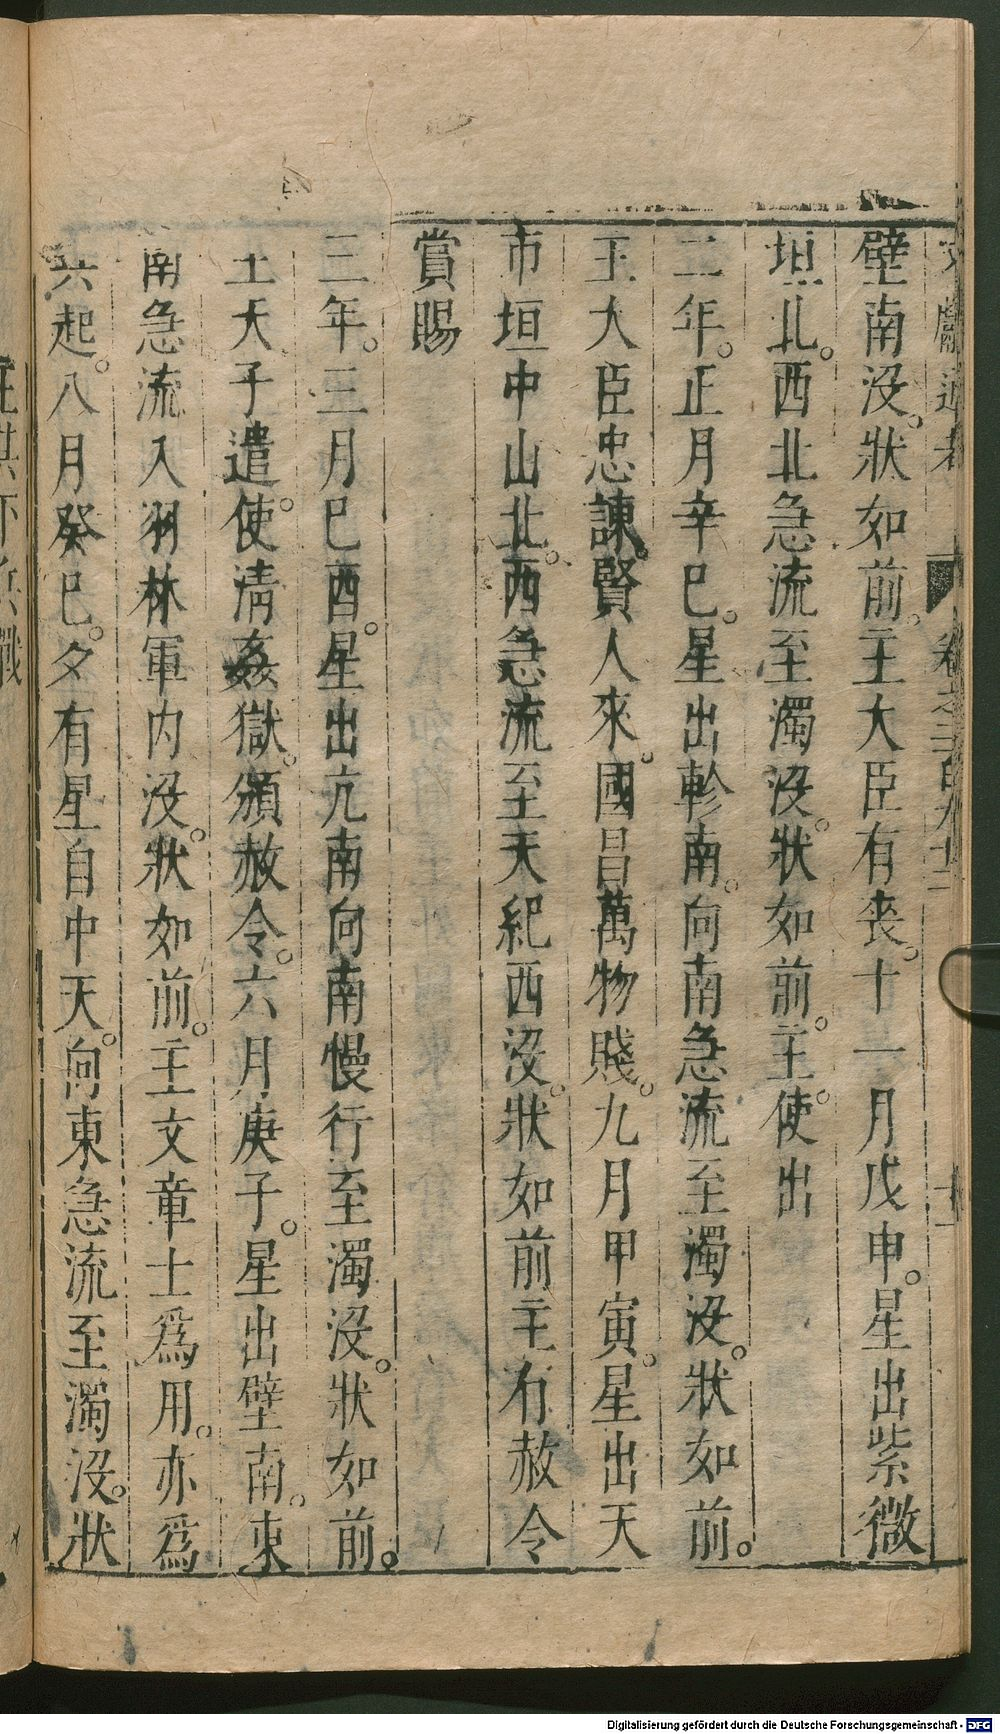 文獻通考 卷之二百九十二
壁南沒。狀如前。主大臣有喪。十一月戊申。星出紫微
垣北。西北急流至濁沒。狀如前。主使出
二年。正月辛巳。星出軫南。向南急流至濁沒。狀如前。
主大臣忠諫。賢人來。國昌萬物賤。九月甲寅。星出天
市垣中山北。西急流至天紀西沒。狀如前主有赦令
賞賜
三年。三月巳酉。星出亢南向南慢行至濁沒。狀如前。
主天子遣使。清姦獄。頒赦令。六月庚子。星出壁南。東
南急流入羽林軍內沒。狀如前。主文章士為用。亦為
兵起。八月癸巳。夕有星自中天。向東急流至濁沒。狀
Digitalisierung gefördert durch die Deutsche Forschungsgemeinschaft - DFG